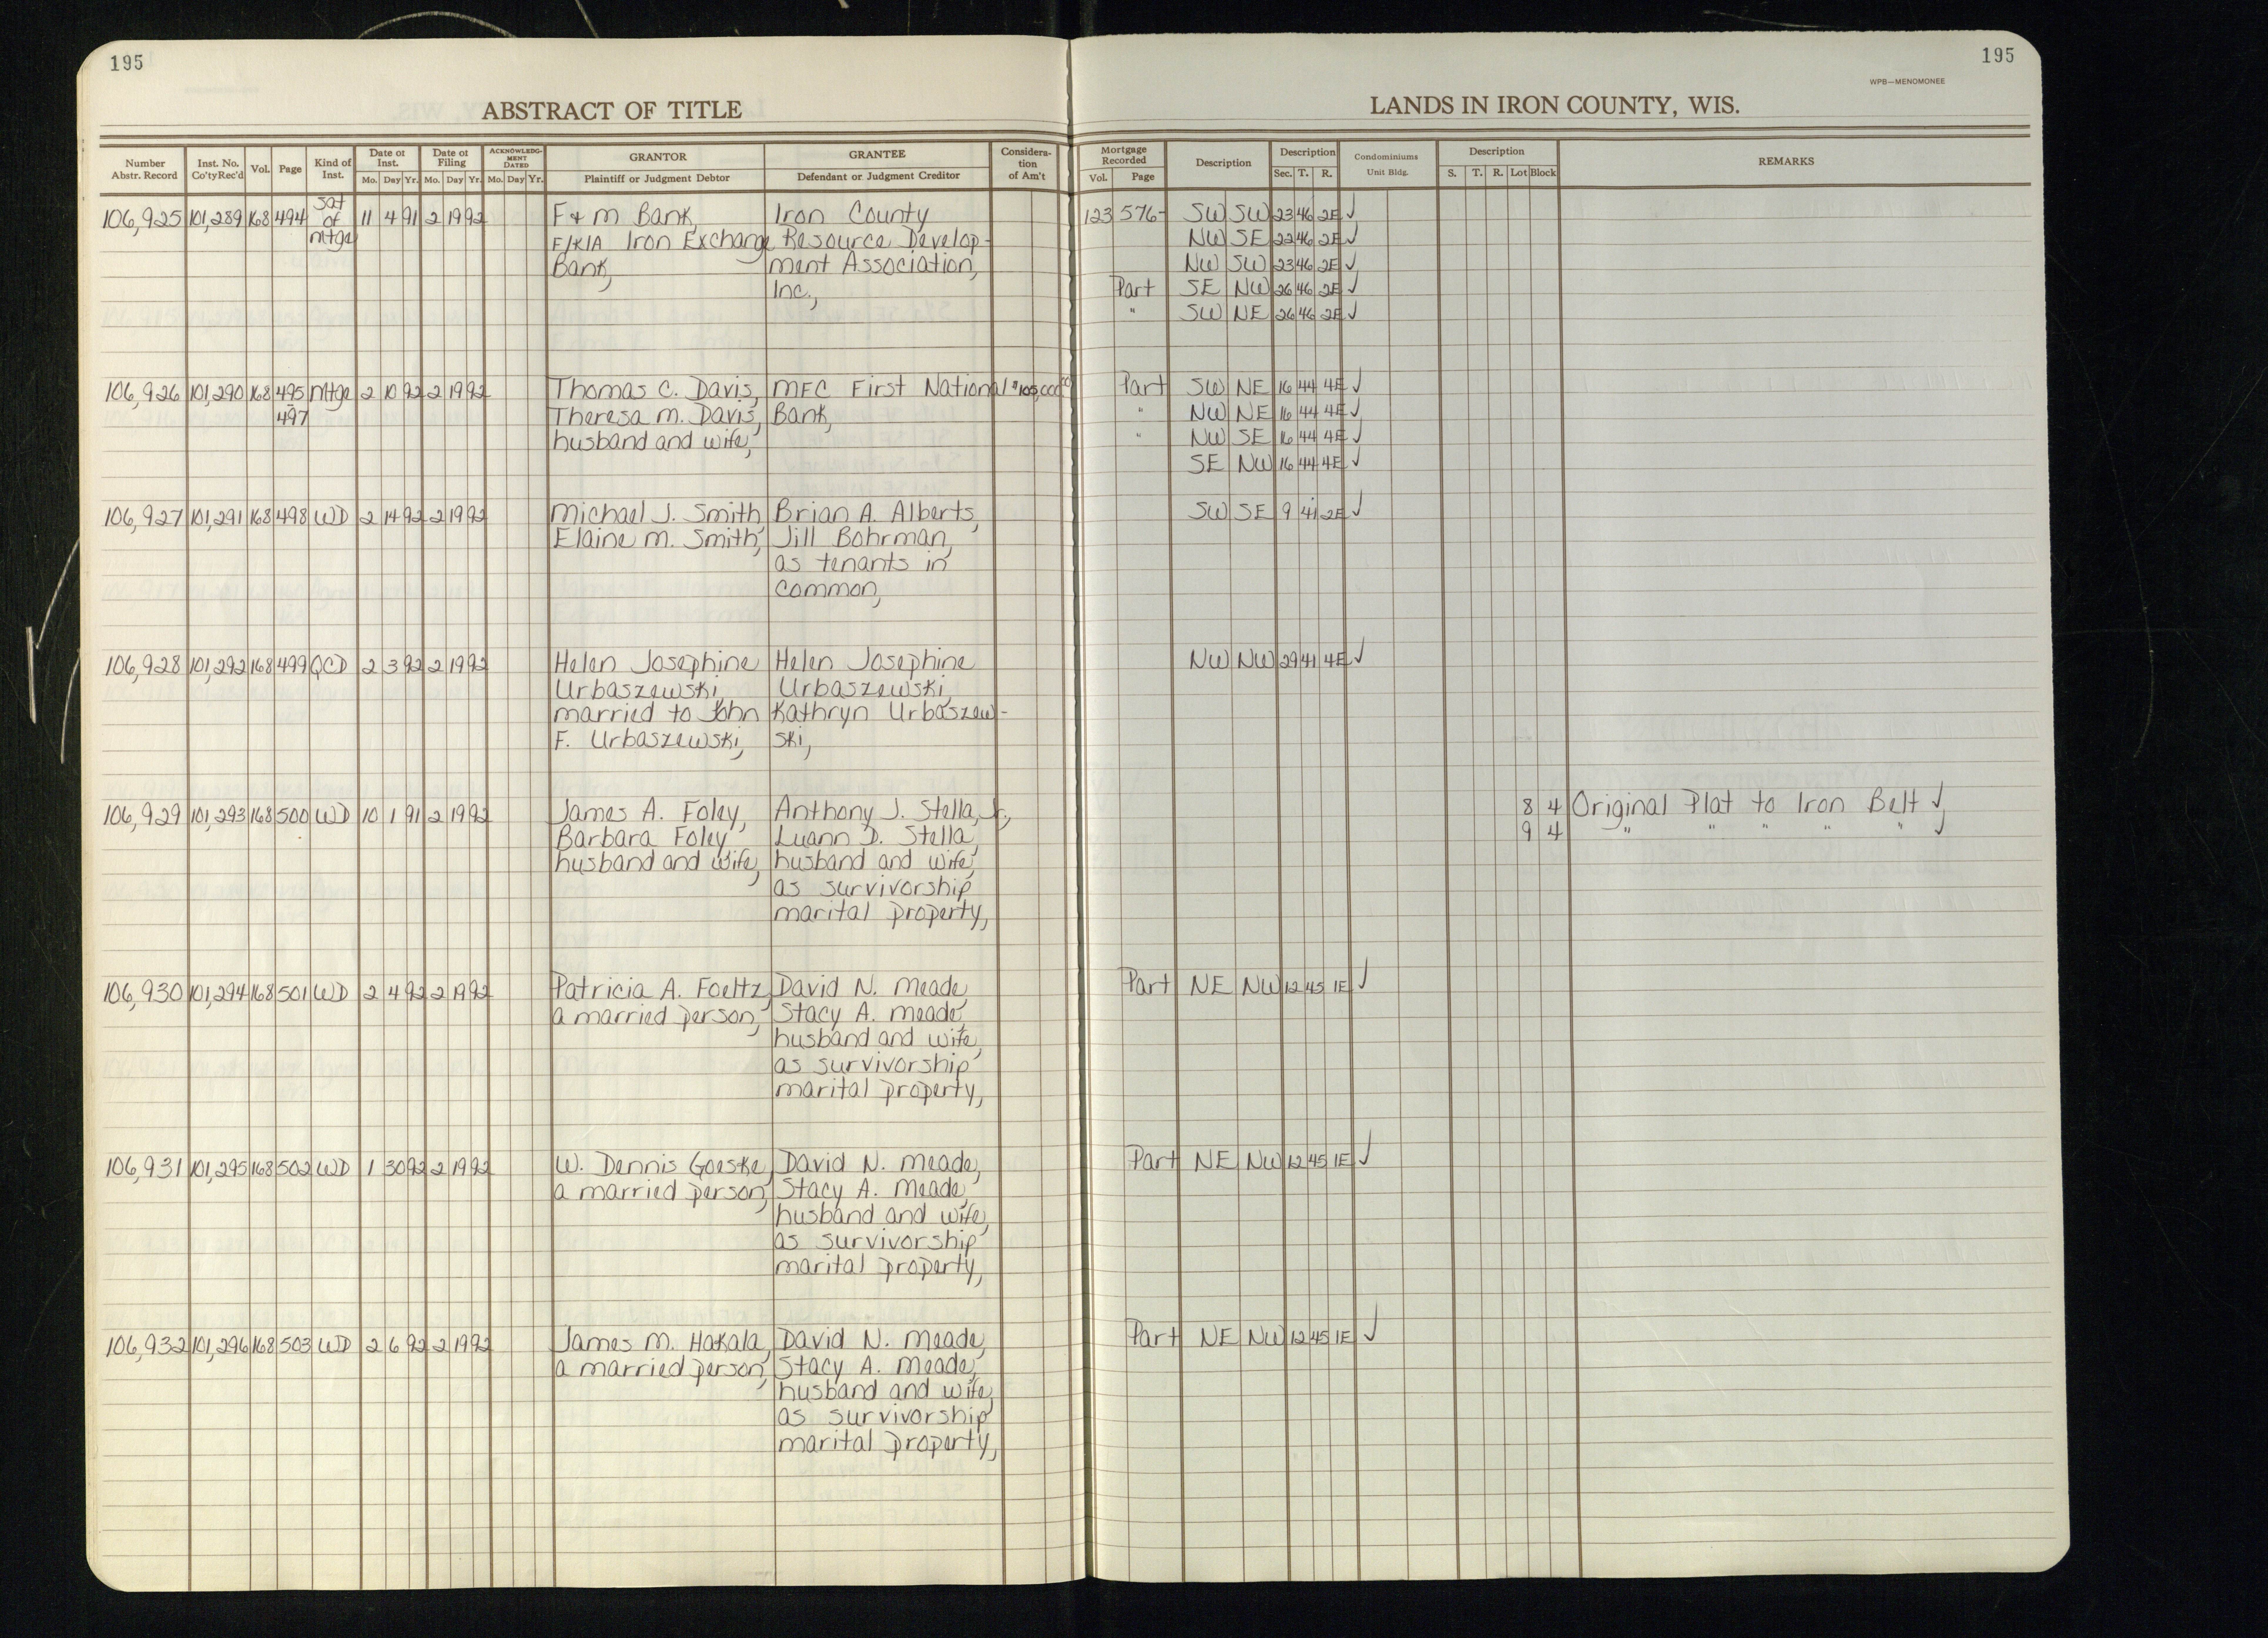 195
195
WPB—MENOMONEE
ABSTRACT OF TITLE
LANDS IN IRON COUNTY, WIS.
Number Abstr. Record | Inst. No. Co'ty Rec'd | Vol. | Page | Kind of Inst. | Date of Inst. Mo. Day Yr. | Date of Filing Mo. Day Yr. | ACKNOWLEDGMENT DATED Mo. Day Yr. | GRANTOR Plaintiff or Judgment Debtor | GRANTEE Defendant or Judgment Creditor | Consideration of Am't | Mortgage Recorded Vol. Page | Description | Description Sec. T. R. | Condominiums Unit Bldg. | Description S. T. R. Lot Block | REMARKS
106,925 101,289 168 494 Sat of mtge 11 4 91 2 19 92 F & M Bank, Iron County 123 576- SW SW 23 46 2E ✓
F/K/A Iron Exchange Resource Develop- NW SE 22 46 2E ✓
Bank, ment Association, NW SW 23 46 2E ✓
Inc., Part SE NW 26 46 2E ✓
" SW NE 26 46 2E ✓
106,926 101,290 168 495 mtge 2 10 92 2 19 92 Thomas C. Davis, MFC First National $105,000.00 Part SW NE 16 44 4E ✓
497 Theresa M. Davis, Bank, " NW NE 16 44 4E ✓
husband and wife, " NW SE 16 44 4E ✓
SE NW 16 44 4E ✓
106,927 101,291 168 498 WD 2 14 92 2 19 92 Michael J. Smith, Brian A. Alberts, SW SE 9 41 2E ✓
Elaine M. Smith, Jill Bohrman,
as tenants in
common,
106,928 101,292 168 499 QCD 2 3 92 2 19 92 Helen Josephine Helen Josephine NW NW 29 41 4E ✓
Urbaszewski, Urbaszewski,
married to John Kathryn Urbaszew-
F. Urbaszewski, ski,
106,929 101,293 168 500 WD 10 1 91 2 19 92 James A. Foley, Anthony J. Stella, Jr., 8 4 Original Plat to Iron Belt ✓
Barbara Foley Luann D. Stella, 9 4 " " " " " ✓
husband and wife, husband and wife,
as survivorship
marital property,
106,930 101,294 168 501 WD 2 4 92 2 19 92 Patricia A. Foeltz, David N. Meade, Part NE NW 12 45 1E ✓
a married person, Stacy A. Meade,
husband and wife,
as survivorship
marital property,
106,931 101,295 168 502 WD 1 30 92 2 19 92 W. Dennis Goeske, David N. Meade, Part NE NW 12 45 1E ✓
a married person, Stacy A. Meade,
husband and wife,
as survivorship
marital property,
106,932 101,296 168 503 WD 2 6 92 2 19 92 James M. Hakala, David N. Meade, Part NE NW 12 45 1E ✓
a married person, Stacy A. Meade,
husband and wife,
as survivorship
marital property,